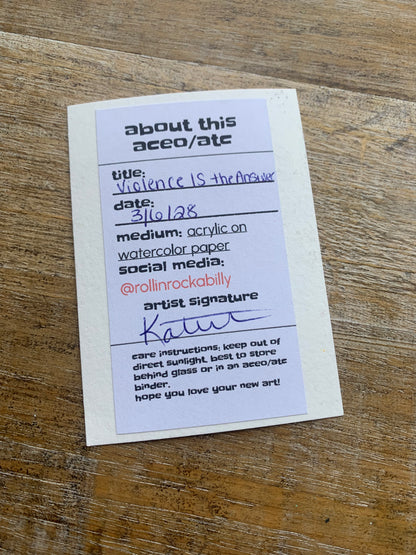 about this
aceo/atc
title:
Violence IS the Answer
date:
3/6/28
medium: acrylic on
watercolor paper
social media:
@rollinrockabilly
artist signature
care instructions: keep out of
direct sunlight. best to store
behind glass or in an aceo/atc
binder.
hope you love your new art!